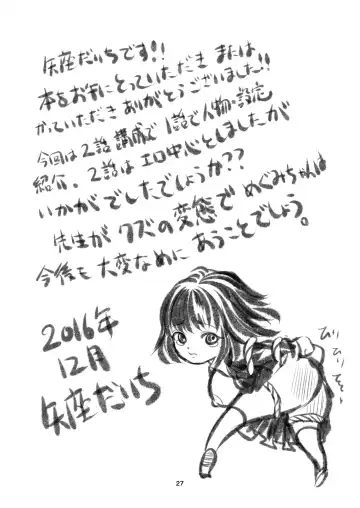 矢座だいちです!!
本をお手にとっていただき または
かっていただき ありがとうございました!!
今回は2話構成で 1話で人物・設定
紹介、2話はエロ中心としましたが
いかがでしたでしょうか??
先生がクズの変態で めぐみちゃんは
今後も大変なめにあうことでしょう。
2016年
12月
矢座だいち
ひり
ひり
27